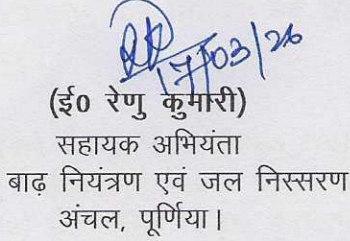 17/03/26
(ई0 रेणु कुमारी)
सहायक अभियंता
बाढ़ नियंत्रण एवं जल निस्सरण
अंचल, पूर्णिया।